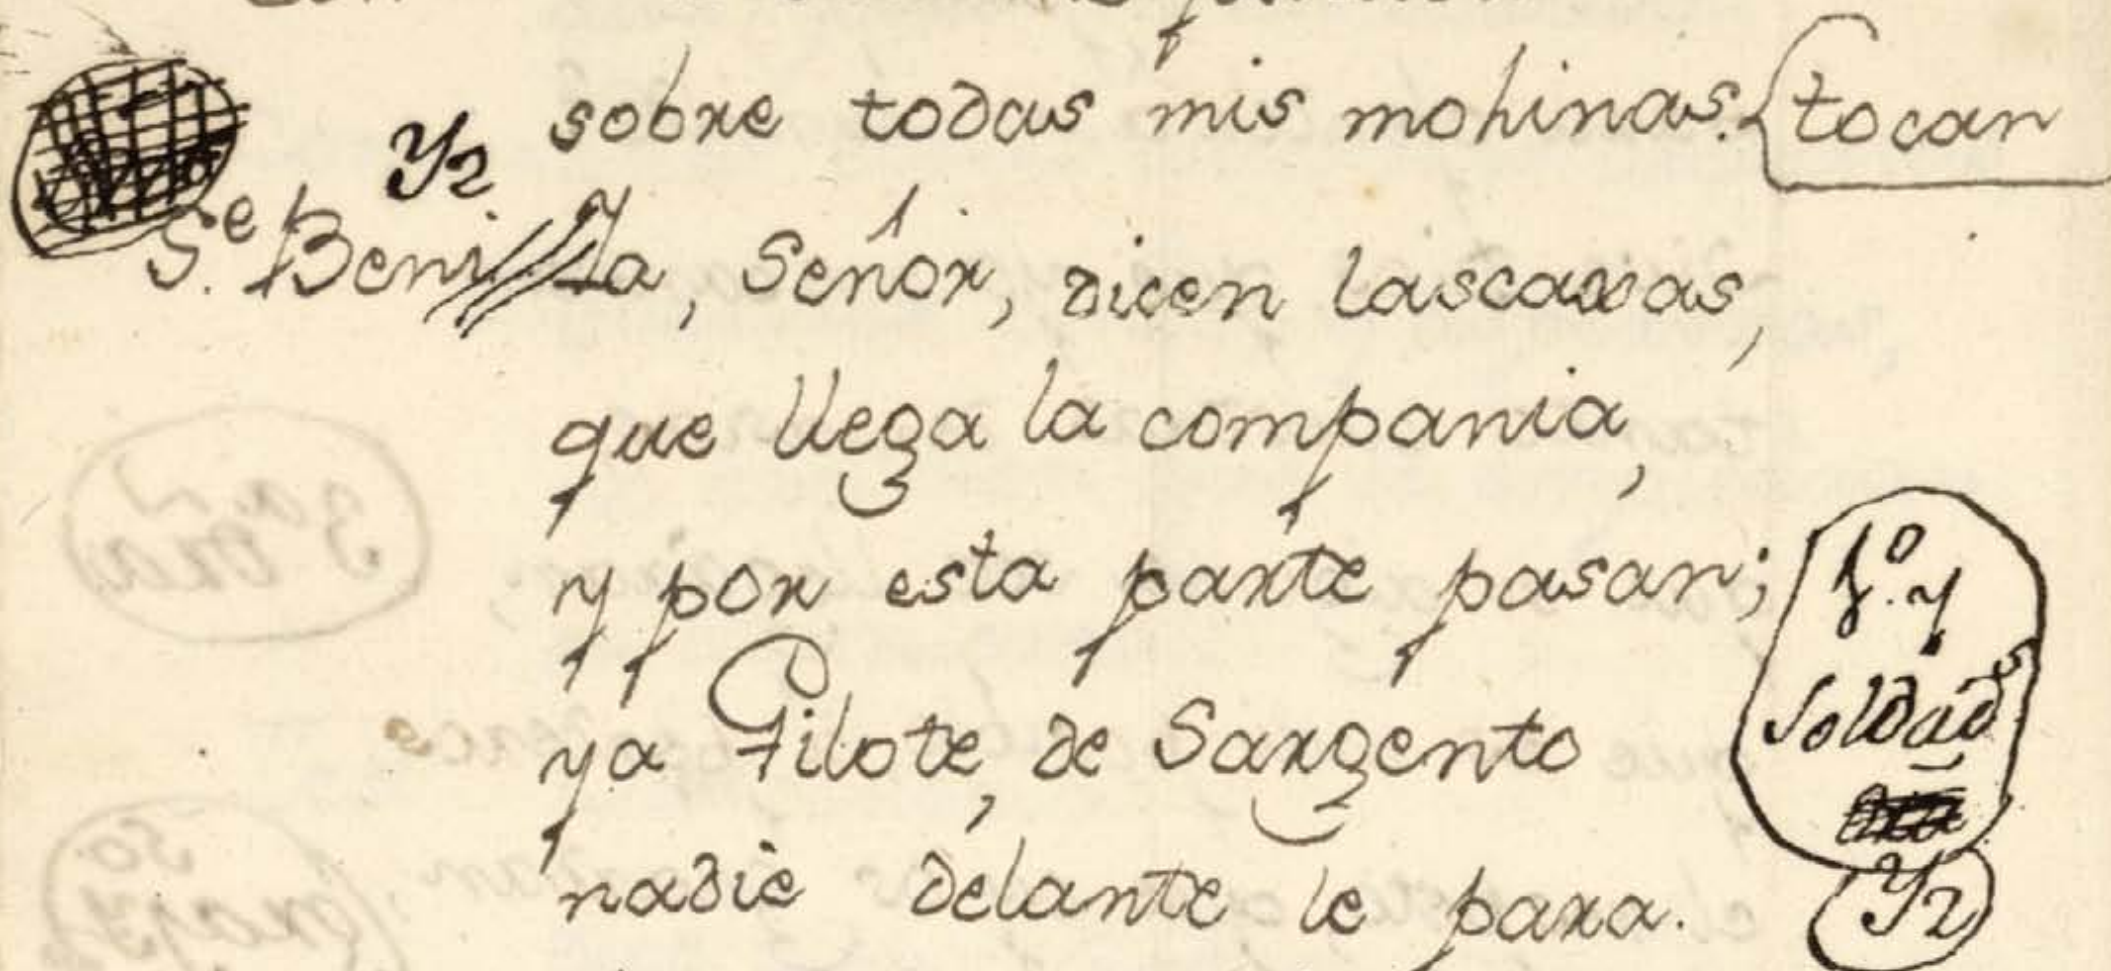 sobre todas mis mohinas. tocan
Yz
Se. Beni Ya, Señor, dicen lascaxas,
que llega la compania,
y por esta parte pasan;
y
Soldads
ya Pilote, de Sargento
nadie delante le para.
Yz